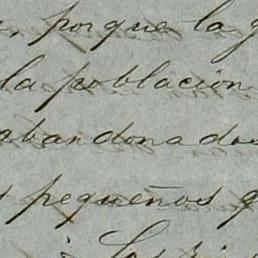 , porque la
la población
abandonados
pequeños